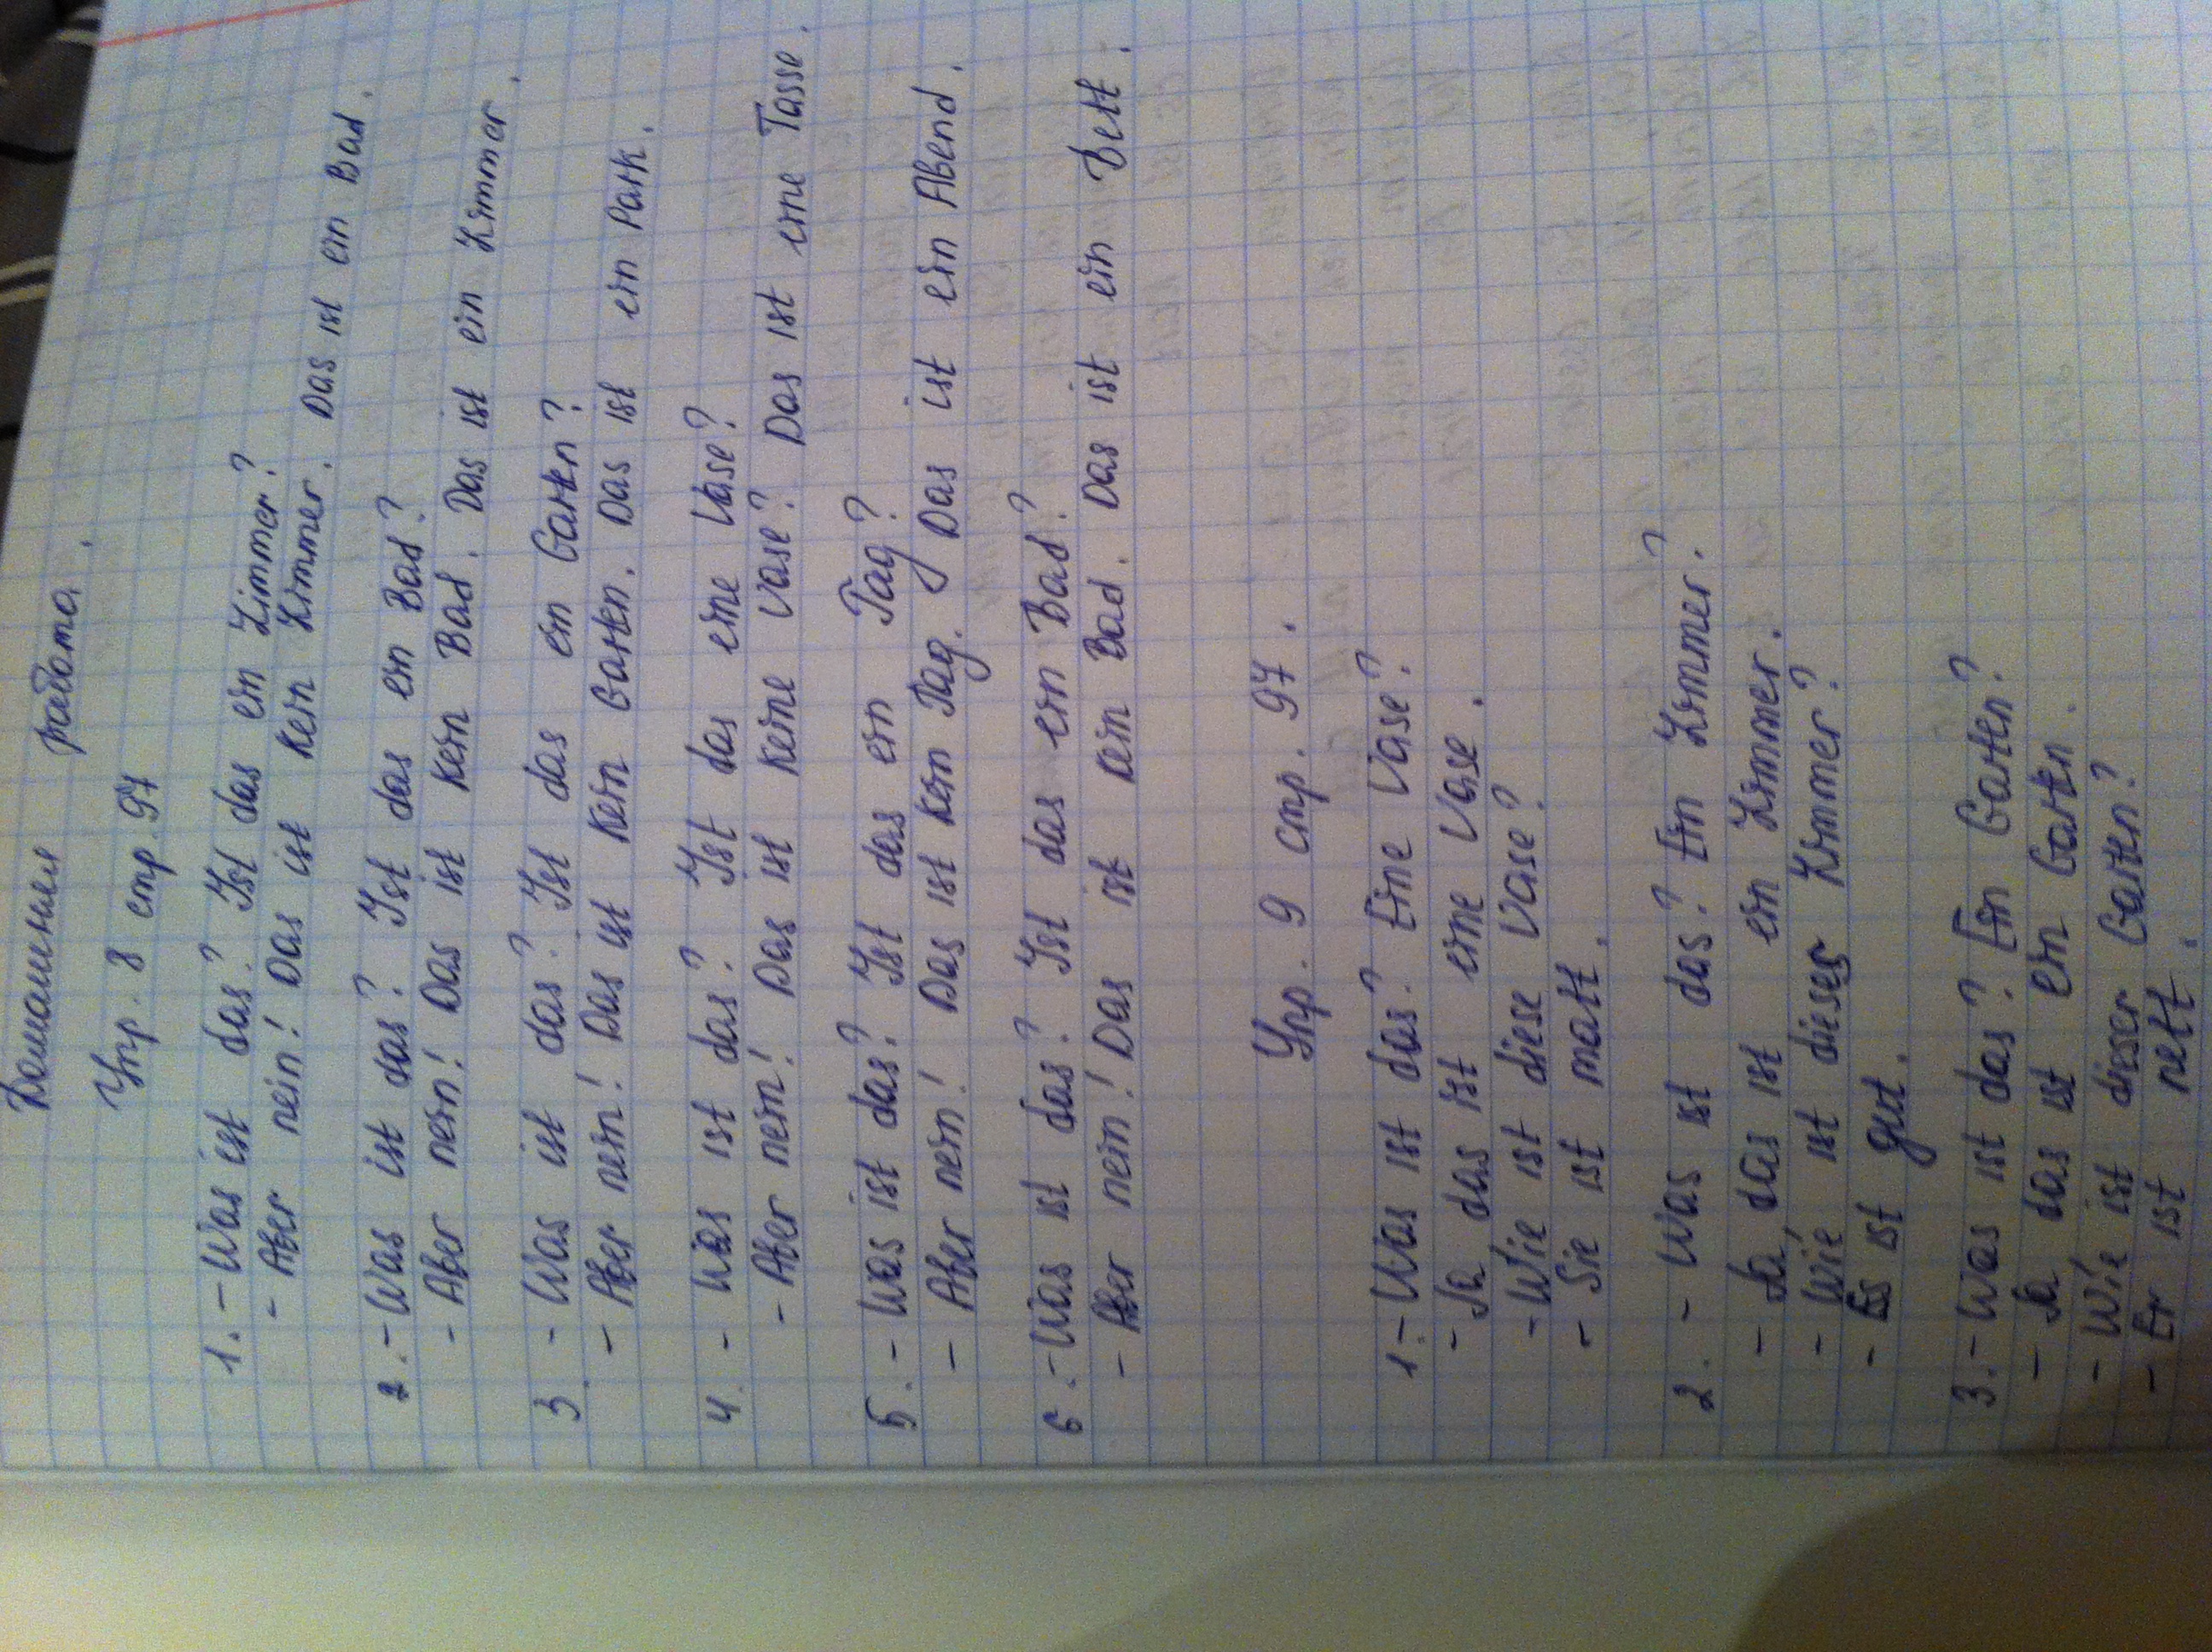 Домашняя работа.
Упр. 8 стр. 97
1. - Was ist das? Ist das ein Zimmer?
- Aber nein! Das ist kein Zimmer. Das ist ein Bad.
2. - Was ist das? Ist das ein Bad?
- Aber nein! Das ist kein Bad. Das ist ein Zimmer.
3. - Was ist das? Ist das ein Garten?
- Aber nein! Das ist kein Garten. Das ist ein Park.
4. - Was ist das? Ist das eine Vase?
- Aber nein! Das ist keine Vase? Das ist eine Tasse.
5. - Was ist das? Ist das ein Tag?
- Aber nein! Das ist kein Tag. Das ist ein Abend.
6. - Was ist das? Ist das ein Bad?
- Aber nein! Das ist kein Bad. Das ist ein Bett.
Упр. 9 стр. 97.
1. - Was ist das? Eine Vase?
- Ja das ist eine Vase.
- Wie ist diese Vase?
- Sie ist matt.
2. - Was ist das? Ein Zimmer.?
- Ja, das ist ein Zimmer.
- Wie ist dieses Zimmer?
- Es ist gut.
3. - Was ist das? Ein Garten?
- Ja das ist ein Garten.
- Wie ist dieser Garten?
- Er ist nett.